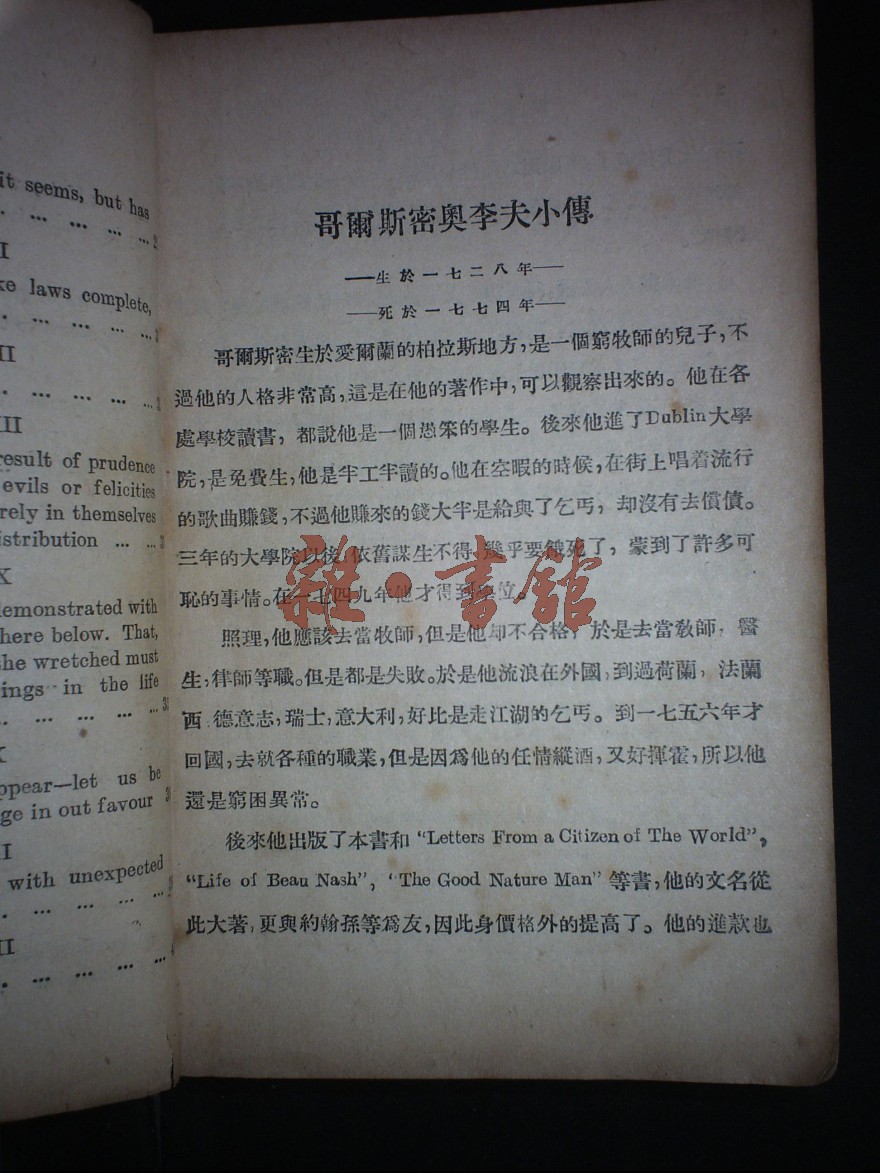 it seems, but has
... ... ... ... ...
I
ke laws complete,
... ... ... ... ...
II
... ... ... ... ...
III
result of prudence
evils or felicities
rely in themselves
istribution ... ...
X
demonstrated with
here below. That,
he wretched must
ings in the life
... ... ... ... ...
X
ppear—let us be
ge in out favour
II
with unexpected
... ... ... ... ...
II
... ... ... ... ...
哥爾斯密奧李夫小傳
——生於一七二八年——
——死於一七七四年——
哥爾斯密生於愛爾蘭的柏拉斯地方，是一個窮牧師的兒子，不
過他的人格非常高，這是在他的著作中，可以觀察出來的。他在各
處學校讀書，都說他是一個愚笨的學生。後來他進了Dublin大學
院，是免費生，他是半工半讀的。他在空暇的時候，在街上唱着流行
的歌曲賺錢，不過他賺來的錢大半是給與了乞丐，却沒有去償債。
三年的大學院以後，依舊謀生不得，幾乎要餓死了，蒙到了許多可
恥的事情。在一七四九年他才得到學位。
照理，他應該去當牧師，但是他却不合格，於是去當敎師，醫
生，律師等職。但是都是失敗。於是他流浪在外國，到過荷蘭，法蘭
西，德意志，瑞士，意大利，好比是走江湖的乞丐。到一七五六年才
回國，去就各種的職業，但是因爲他的任情縱酒，又好揮霍，所以他
還是窮困異常。
後來他出版了本書和“Letters From a Citizen of The World”，
“Life of Beau Nash”，“The Good Nature Man”等書，他的文名從
此大著，更與約翰孫等爲友，因此身價格外的提高了。他的進款也
雜·書館